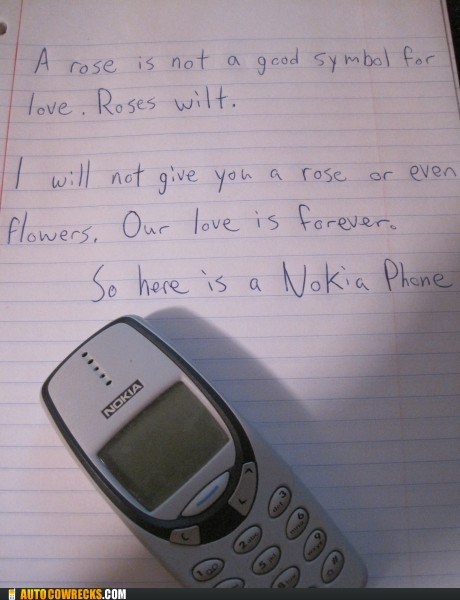 A rose is not a good symbol for
love. Roses wilt.
I will not give you a rose or even
flowers. Our love is forever.
So here is a Nokia Phone
NOKIA
C
1
2
3
5
6
9
AUTOCOWRECKS.COM